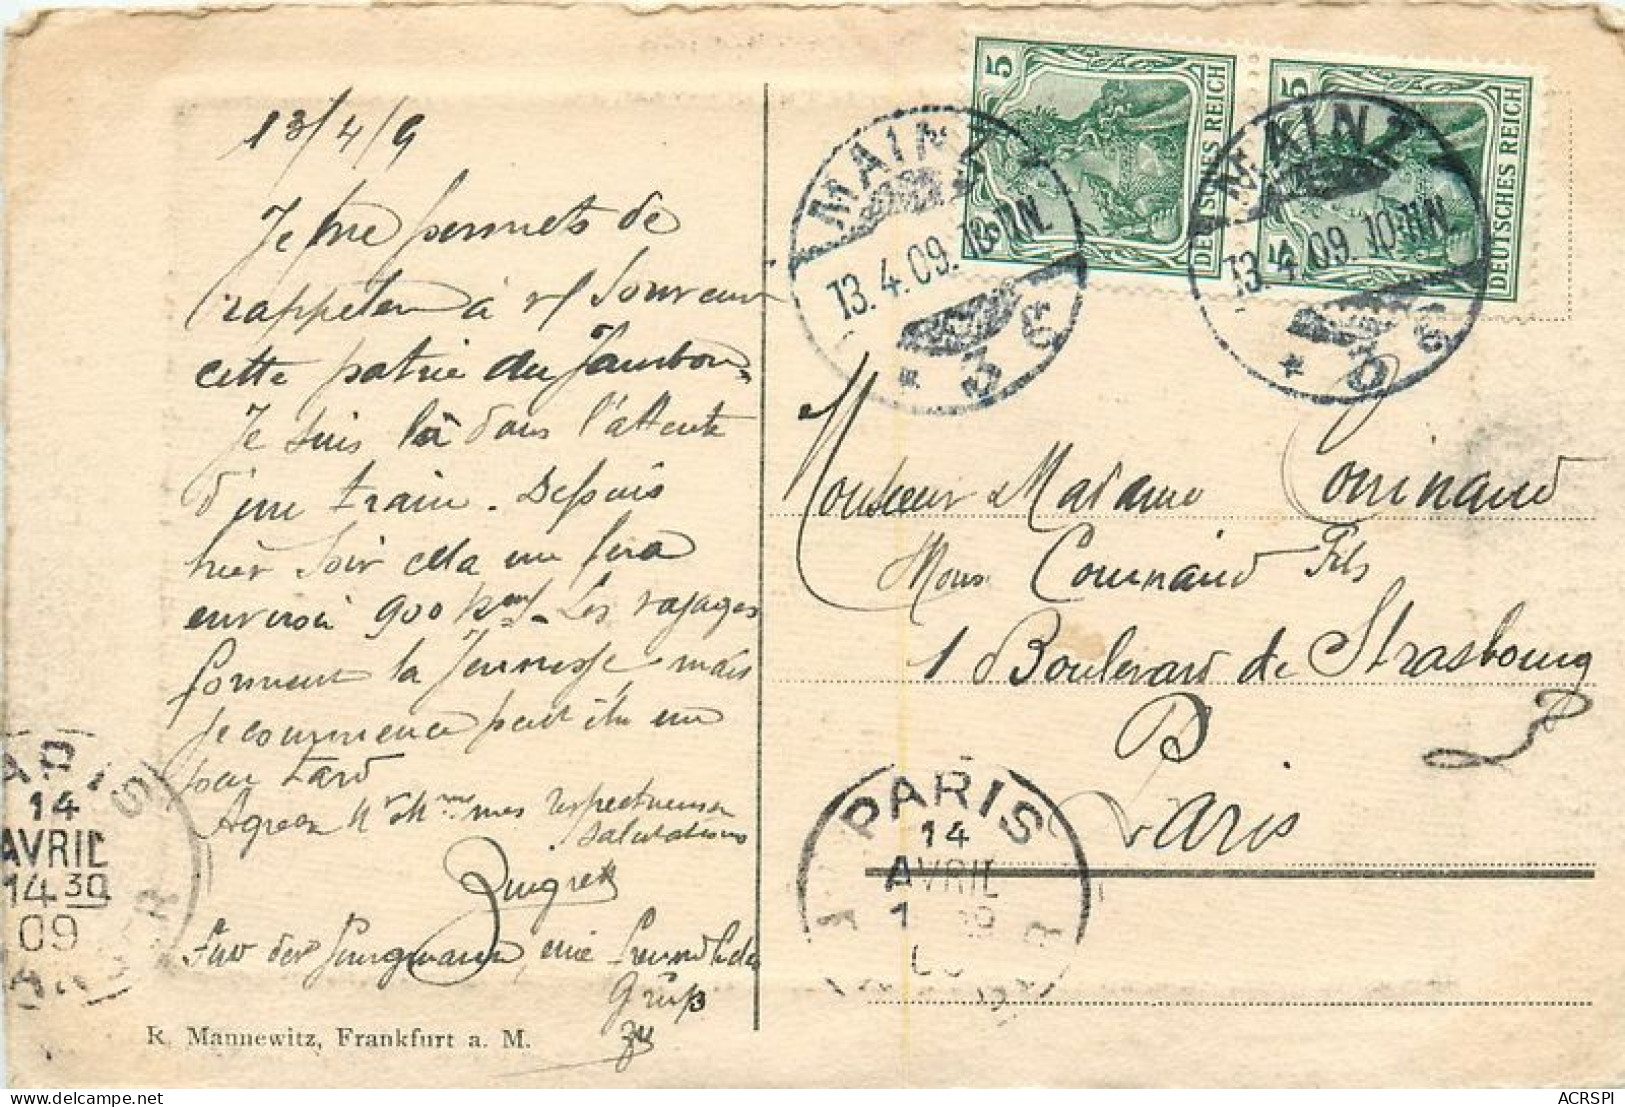 13/4/9
Je me permets de
rappeler à vl souvenir
cette patrie du Jambon.
Je suis là dans l'attente
d'un train. Depuis
hier soir cela me fera
environ 900 km. Les voyages
forment la Jeunesse mais
je commence peut être un
peu tard
Agréez Mr & Mme mes respectueuses
salutations
Grüß
R. Mannewitz, Frankfurt a. M.
5 DEUTSCHES REICH
5 5 DEUTSCHES REICH
MAINZ
13.4.09. 10-11N.
* 3
MAINZ
13.4.09. 10-11N.
*
Monsieur & Madame Cominaud
Mons. Cominaud Fils
1 Boulevard de Strasbourg
Paris
PARIS
14
AVRIL
14 30
09
PARIS
14
AVRIL
ACRSPI